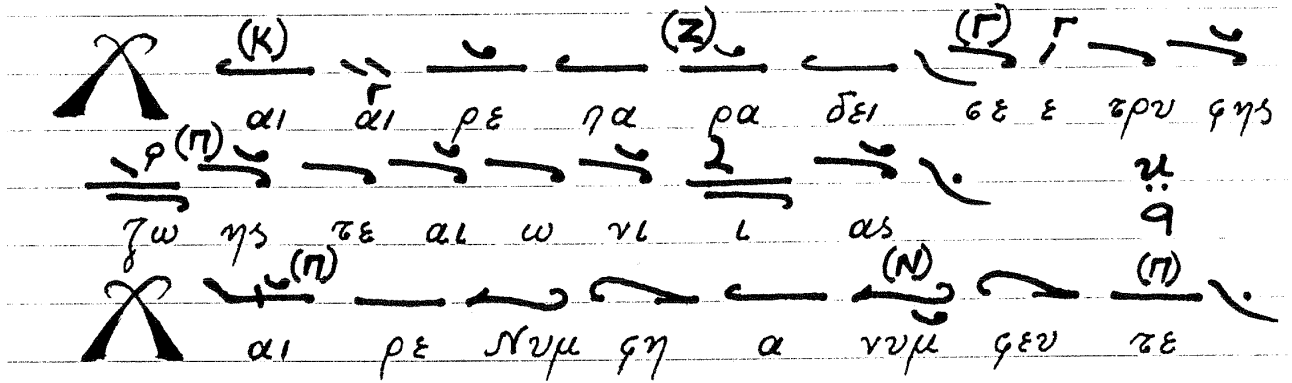 (Κ) (Ζ) (Γ) Γ
Χ αι αι ρε πα ρα δει σε ε τρυ φης
(Π)
ζω ης τε αι ω νι ι ας
(Π) (Ν) (Π)
Χ αι ρε Νυμ φη α νυμ φευ τε